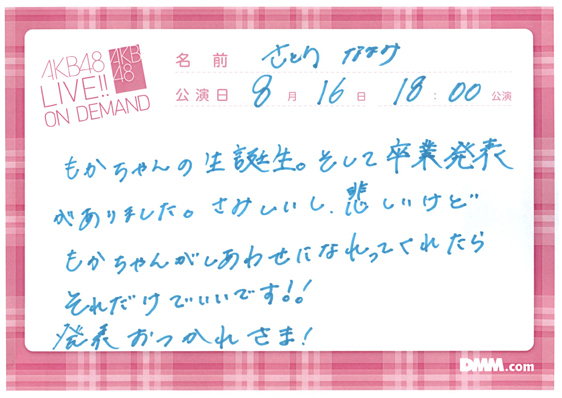 AKB48
LIVE!!
ON DEMAND
AKB
48
名前 さとう ななみ
公演日 8月16日 18:00公演
もかちゃんの生誕生。そして卒業発表
がありました。さみしいし、悲しいけど
もかちゃんがしあわせになれってくれたら
それだけでいいです!!
発表おつかれさま!
DMM.com